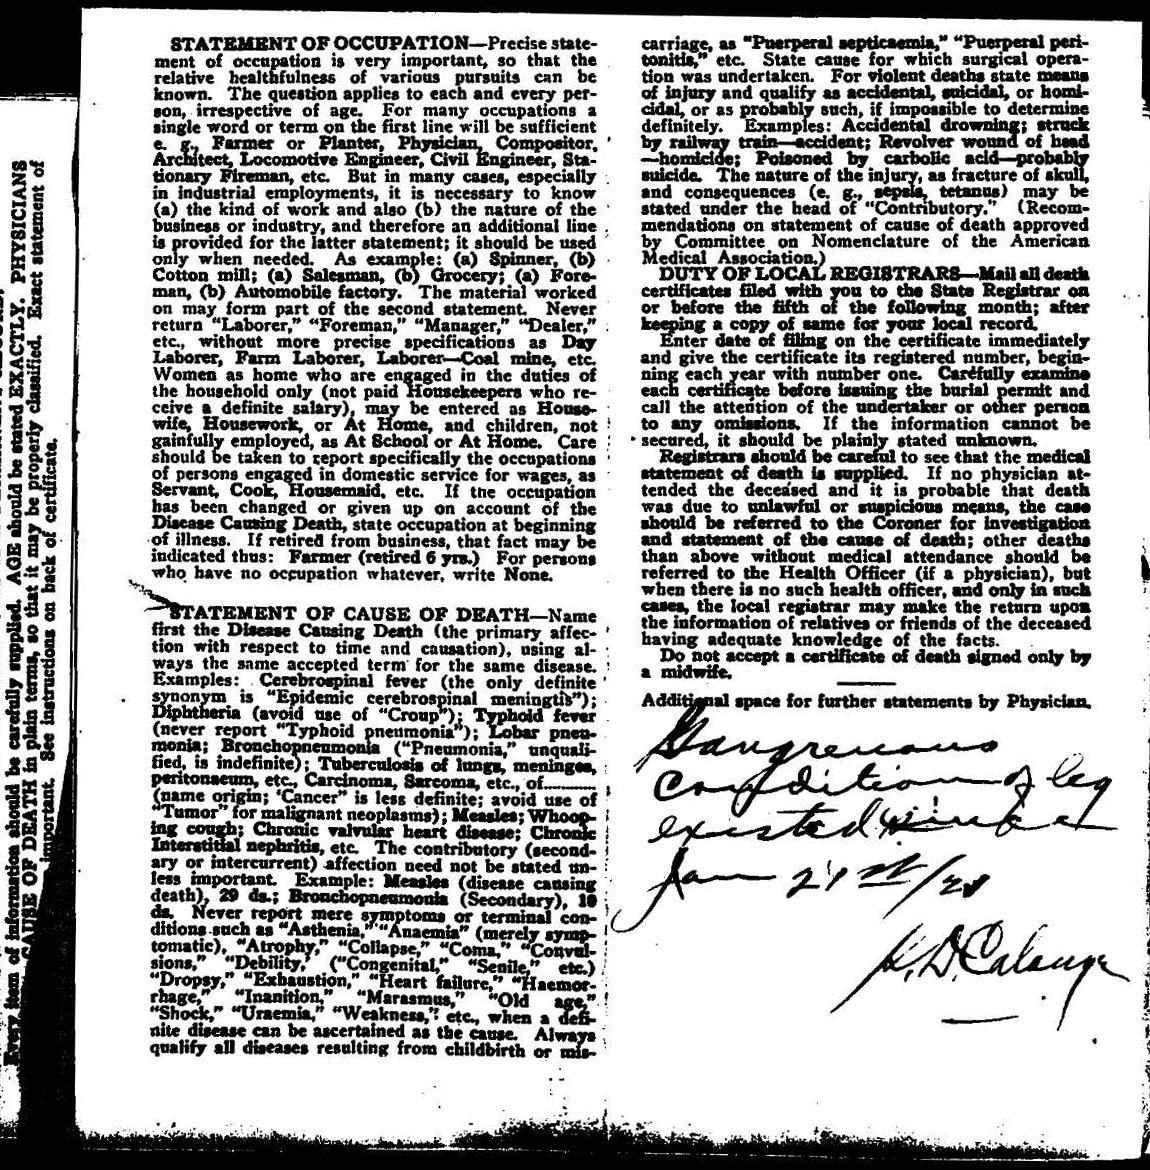 STATEMENT OF OCCUPATION—Precise state-
ment of occupation is very important, so that the
relative healthfulness of various pursuits can be
known. The question applies to each and every per-
son, irrespective of age. For many occupations a
single word or term on the first line will be sufficient
e. g., Farmer or Planter, Physician, Compositor,
Architect, Locomotive Engineer, Civil Engineer, Sta-
tionary Fireman, etc. But in many cases, especially
in industrial employments, it is necessary to know
(a) the kind of work and also (b) the nature of the
business or industry, and therefore an additional line
is provided for the latter statement; it should be used
only when needed. As example: (a) Spinner, (b)
Cotton mill; (a) Salesman, (b) Grocery; (a) Fore-
man, (b) Automobile factory. The material worked
on may form part of the second statement. Never
return "Laborer," "Foreman," "Manager," "Dealer,"
etc., without more precise specifications as Day
Laborer, Farm Laborer, Laborer—Coal mine, etc.
Women as home who are engaged in the duties of
the household only (not paid Housekeepers who re-
ceive a definite salary), may be entered as House-
wife, Housework, or At Home, and children, not
gainfully employed, as At School or At Home. Care
should be taken to report specifically the occupations
of persons engaged in domestic service for wages, as
Servant, Cook, Housemaid, etc. If the occupation
has been changed or given up on account of the
Disease Causing Death, state occupation at beginning
of illness. If retired from business, that fact may be
indicated thus: Farmer (retired 6 yrs.) For persons
who have no occupation whatever, write None.
STATEMENT OF CAUSE OF DEATH—Name
first the Disease Causing Death (the primary affec-
tion with respect to time and causation), using al-
ways the same accepted term for the same disease.
Examples: Cerebrospinal fever (the only definite
synonym is "Epidemic cerebrospinal meningtis");
Diphtheria (avoid use of "Croup"); Typhoid fever
(never report "Typhoid pneumonia"); Lobar pneu-
monia; Bronchopneumonia ("Pneumonia," unquali-
fied, is indefinite); Tuberculosis of lungs, meninges,
peritonaeum, etc., Carcinoma, Sarcoma, etc., of..........
(name origin; 'Cancer" is less definite; avoid use of
"Tumor" for malignant neoplasms); Measles; Whoop-
ing cough; Chronic valvular heart disease; Chronic
Interstitial nephritis, etc. The contributory (second-
ary or intercurrent) affection need not be stated un-
less important. Example: Measles (disease causing
death), 29 ds.; Bronchopneumonia (Secondary), 10
ds. Never report mere symptoms or terminal con-
ditions such as "Asthenia," "Anaemia" (merely symp-
tomatic), "Atrophy," "Collapse," "Coma," "Convul-
sions," "Debility," ("Congenital," "Senile," etc.)
"Dropsy," "Exhaustion," "Heart failure," "Haemor-
rhage," "Inanition," "Marasmus," "Old age,"
"Shock," "Uraemia," "Weakness," etc., when a defi-
nite disease can be ascertained as the cause. Always
qualify all diseases resulting from childbirth or mis-
carriage, as "Puerperal septicaemia," "Puerperal peri-
tonitis," etc. State cause for which surgical opera-
tion was undertaken. For violent deaths state means
of injury and qualify as accidental, suicidal, or homi-
cidal, or as probably such, if impossible to determine
definitely. Examples: Accidental drowning; struck
by railway train—accident; Revolver wound of head
—homicide; Poisoned by carbolic acid—probably
suicide. The nature of the injury, as fracture of skull,
and consequences (e. g., sepsis, tetanus) may be
stated under the head of "Contributory." (Recom-
mendations on statement of cause of death approved
by Committee on Nomenclature of the American
Medical Association.)
DUTY OF LOCAL REGISTRARS—Mail all death
certificates filed with you to the State Registrar on
or before the fifth of the following month; after
keeping a copy of same for your local record.
Enter date of filing on the certificate immediately
and give the certificate its registered number, begin-
ning each year with number one. Carefully examine
each certificate before issuing the burial permit and
call the attention of the undertaker or other person
to any omissions. If the information cannot be
secured, it should be plainly stated unknown.
Registrars should be careful to see that the medical
statement of death is supplied. If no physician at-
tended the deceased and it is probable that death
was due to unlawful or suspicious means, the case
should be referred to the Coroner for investigation
and statement of the cause of death; other deaths
than above without medical attendance should be
referred to the Health Officer (if a physician), but
when there is no such health officer, and only in such
cases, the local registrar may make the return upon
the information of relatives or friends of the deceased
having adequate knowledge of the facts.
Do not accept a certificate of death signed only by
a midwife.
Additional space for further statements by Physician.
Gangrenous
condition of leg
existed since
Jan 21st/28
Every item of information should be carefully supplied. AGE should be stated EXACTLY. PHYSICIANS
CAUSE OF DEATH in plain terms, so that it may be properly classified. Exact statement of
important. See instructions on back of certificate.